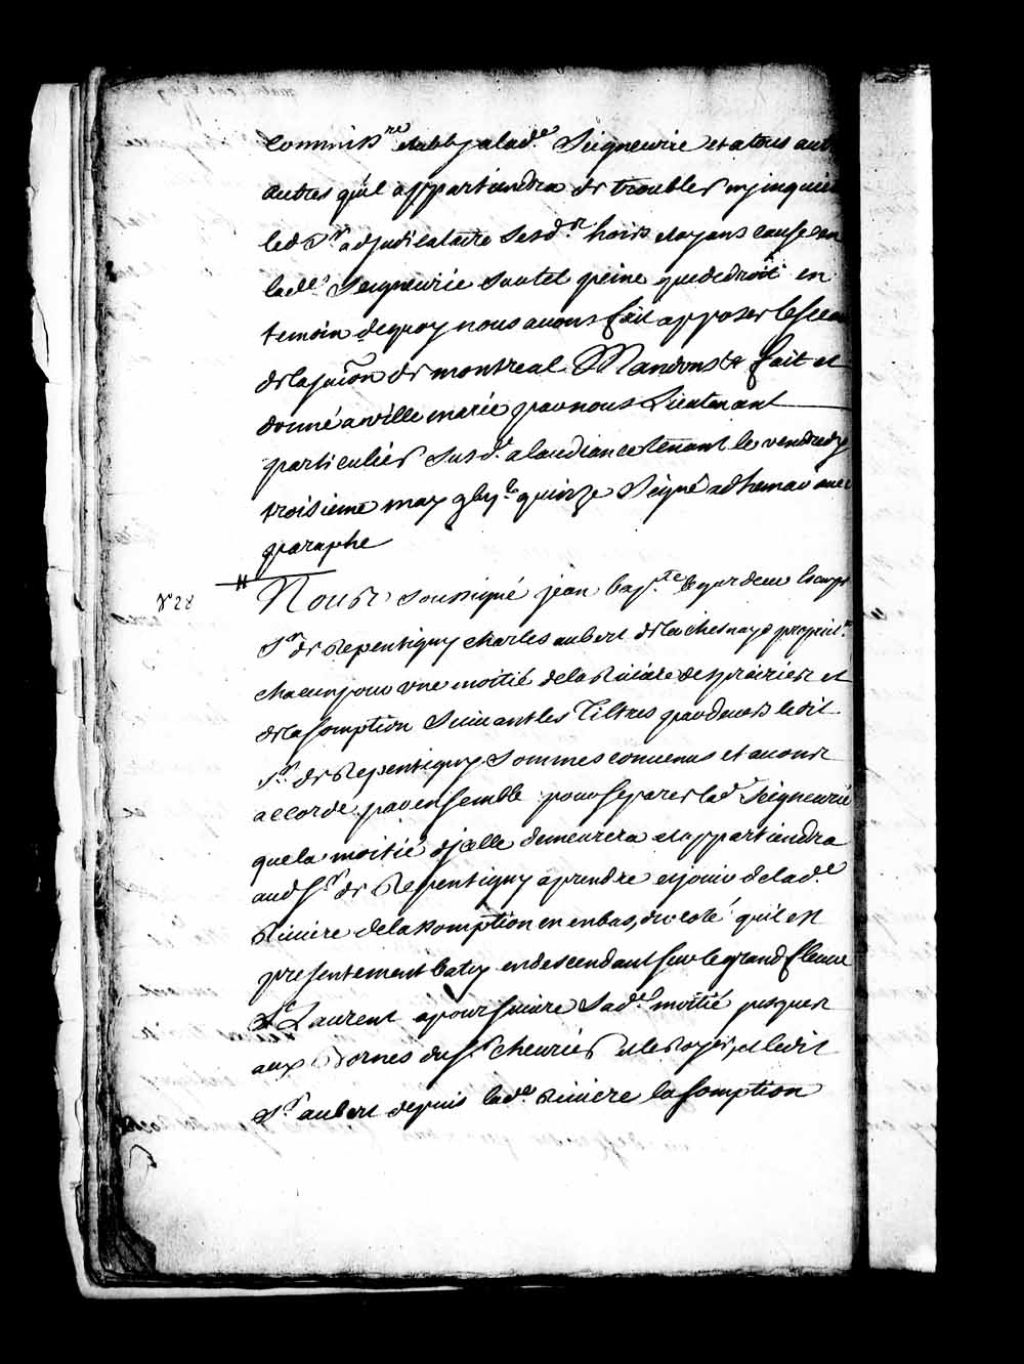 Commiss.re etably a lad.e Seigneurie et a tous
autres quil appartiendra de troubler ny inquieter
led Sr adjudicataire Sesd.ts hoirs et ayans cause en
lad.e Seigneurie Sur tel peine que de droit en
temoin de quoy nous avons fait apposer le sceau
de la jur.on de montreal Mandons &c fait et
donné a ville marie par nous Lieutenant
particulier Susd.t a laudiance tenant le vendredy
troisieme may quinze Signé adhemar avec
paraphe
N.o 28
Nous Soussigné jean bap.te legardeur
Sr de Repentigny charles aubert de la chesnaye propriet.res
chacun pour une moitié de la Riviere des prairies et
de lasomption Suivant les Tiltres par devers ledit
Sr de Repentigny Sommes convenus et avons
accordé par ensemble pour separer lad.e Seigneurie
que la moitié djcelle demeurera et appartiendra
aud Sr de Repentigny a prendre et jouir de lad.e
Riviere de lassomption en en bas, du coté quil est
presentement baty en descendant sur le grand fleuve
St Laurent a poursuivre Sad.e moitié jusques
aux Bornes du Sr et ledit
Sr aubert depuis lad.e Riviere lasomption